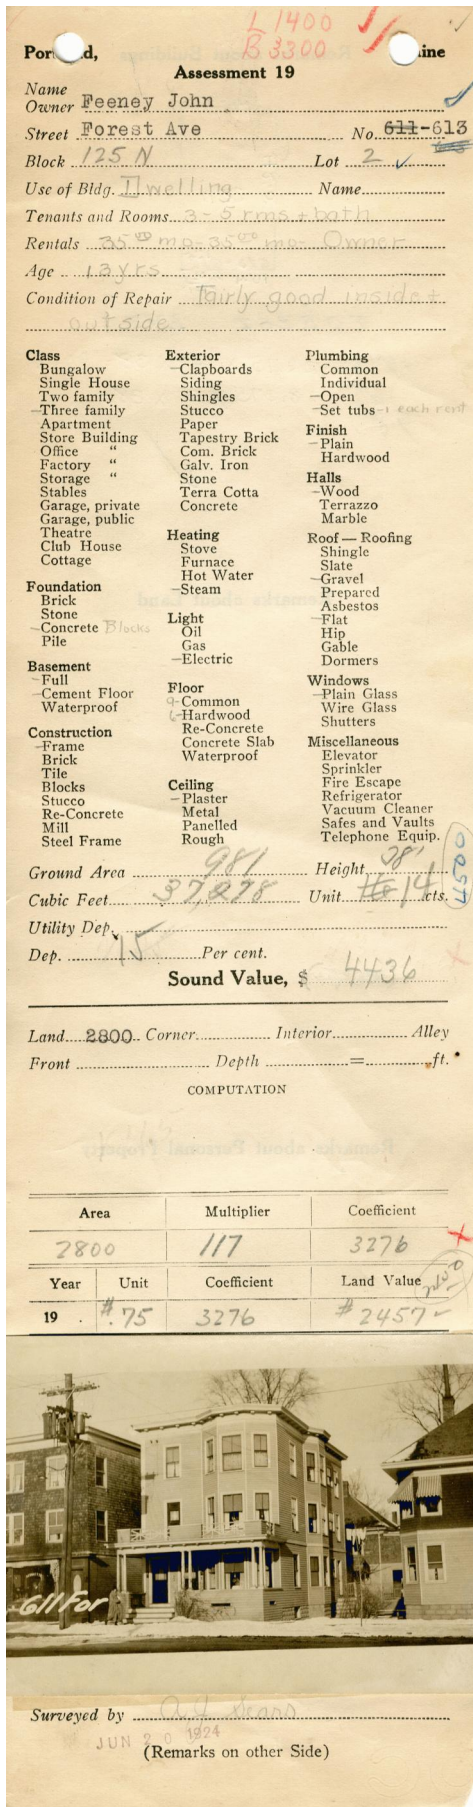 L 1400
B 3300
Por d, ine
Assessment 19
Name
Owner Feeney John
Street Forest Ave No. 611-613
Block 125 N Lot 2
Use of Bldg. Dwelling Name
Tenants and Rooms 3-5 rms + bath
Rentals 35 00 mo-35 00 mo- Owner
Age 13 yrs
Condition of Repair Fairly good inside +
outside
Class
Bungalow
Single House
Two family
-Three family
Apartment
Store Building
Office "
Factory "
Storage "
Stables
Garage, private
Garage, public
Theatre
Club House
Cottage
Foundation
Brick
Stone
-Concrete Blocks
Pile
Basement
-Full
-Cement Floor
Waterproof
Construction
-Frame
Brick
Tile
Blocks
Stucco
Re-Concrete
Mill
Steel Frame
Exterior
-Clapboards
Siding
Shingles
Stucco
Paper
Tapestry Brick
Com. Brick
Galv. Iron
Stone
Terra Cotta
Concrete
Heating
Stove
Furnace
Hot Water
-Steam
Light
Oil
Gas
-Electric
Floor
9-Common
6-Hardwood
Re-Concrete
Concrete Slab
Waterproof
Ceiling
-Plaster
Metal
Panelled
Rough
Plumbing
Common
Individual
-Open
-Set tubs-1 each rent
Finish
-Plain
Hardwood
Halls
-Wood
Terrazzo
Marble
Roof — Roofing
Shingle
Slate
-Gravel
Prepared
Asbestos
-Flat
Hip
Gable
Dormers
Windows
-Plain Glass
Wire Glass
Shutters
Miscellaneous
Elevator
Sprinkler
Fire Escape
Refrigerator
Vacuum Cleaner
Safes and Vaults
Telephone Equip.
Ground Area 981 Height 38'
Cubic Feet 37,278 Unit 14 cts.
Utility Dep.
Dep. 15 Per cent.
Sound Value, $ 4436
Land 2800 Corner Interior Alley
Front Depth = ft.
COMPUTATION
Area Multiplier Coefficient
2800 117 3276
Year Unit Coefficient Land Value
19 $.75 3276 $2457
611 For
Surveyed by A J Sears
JUN 20 1924
(Remarks on other Side)